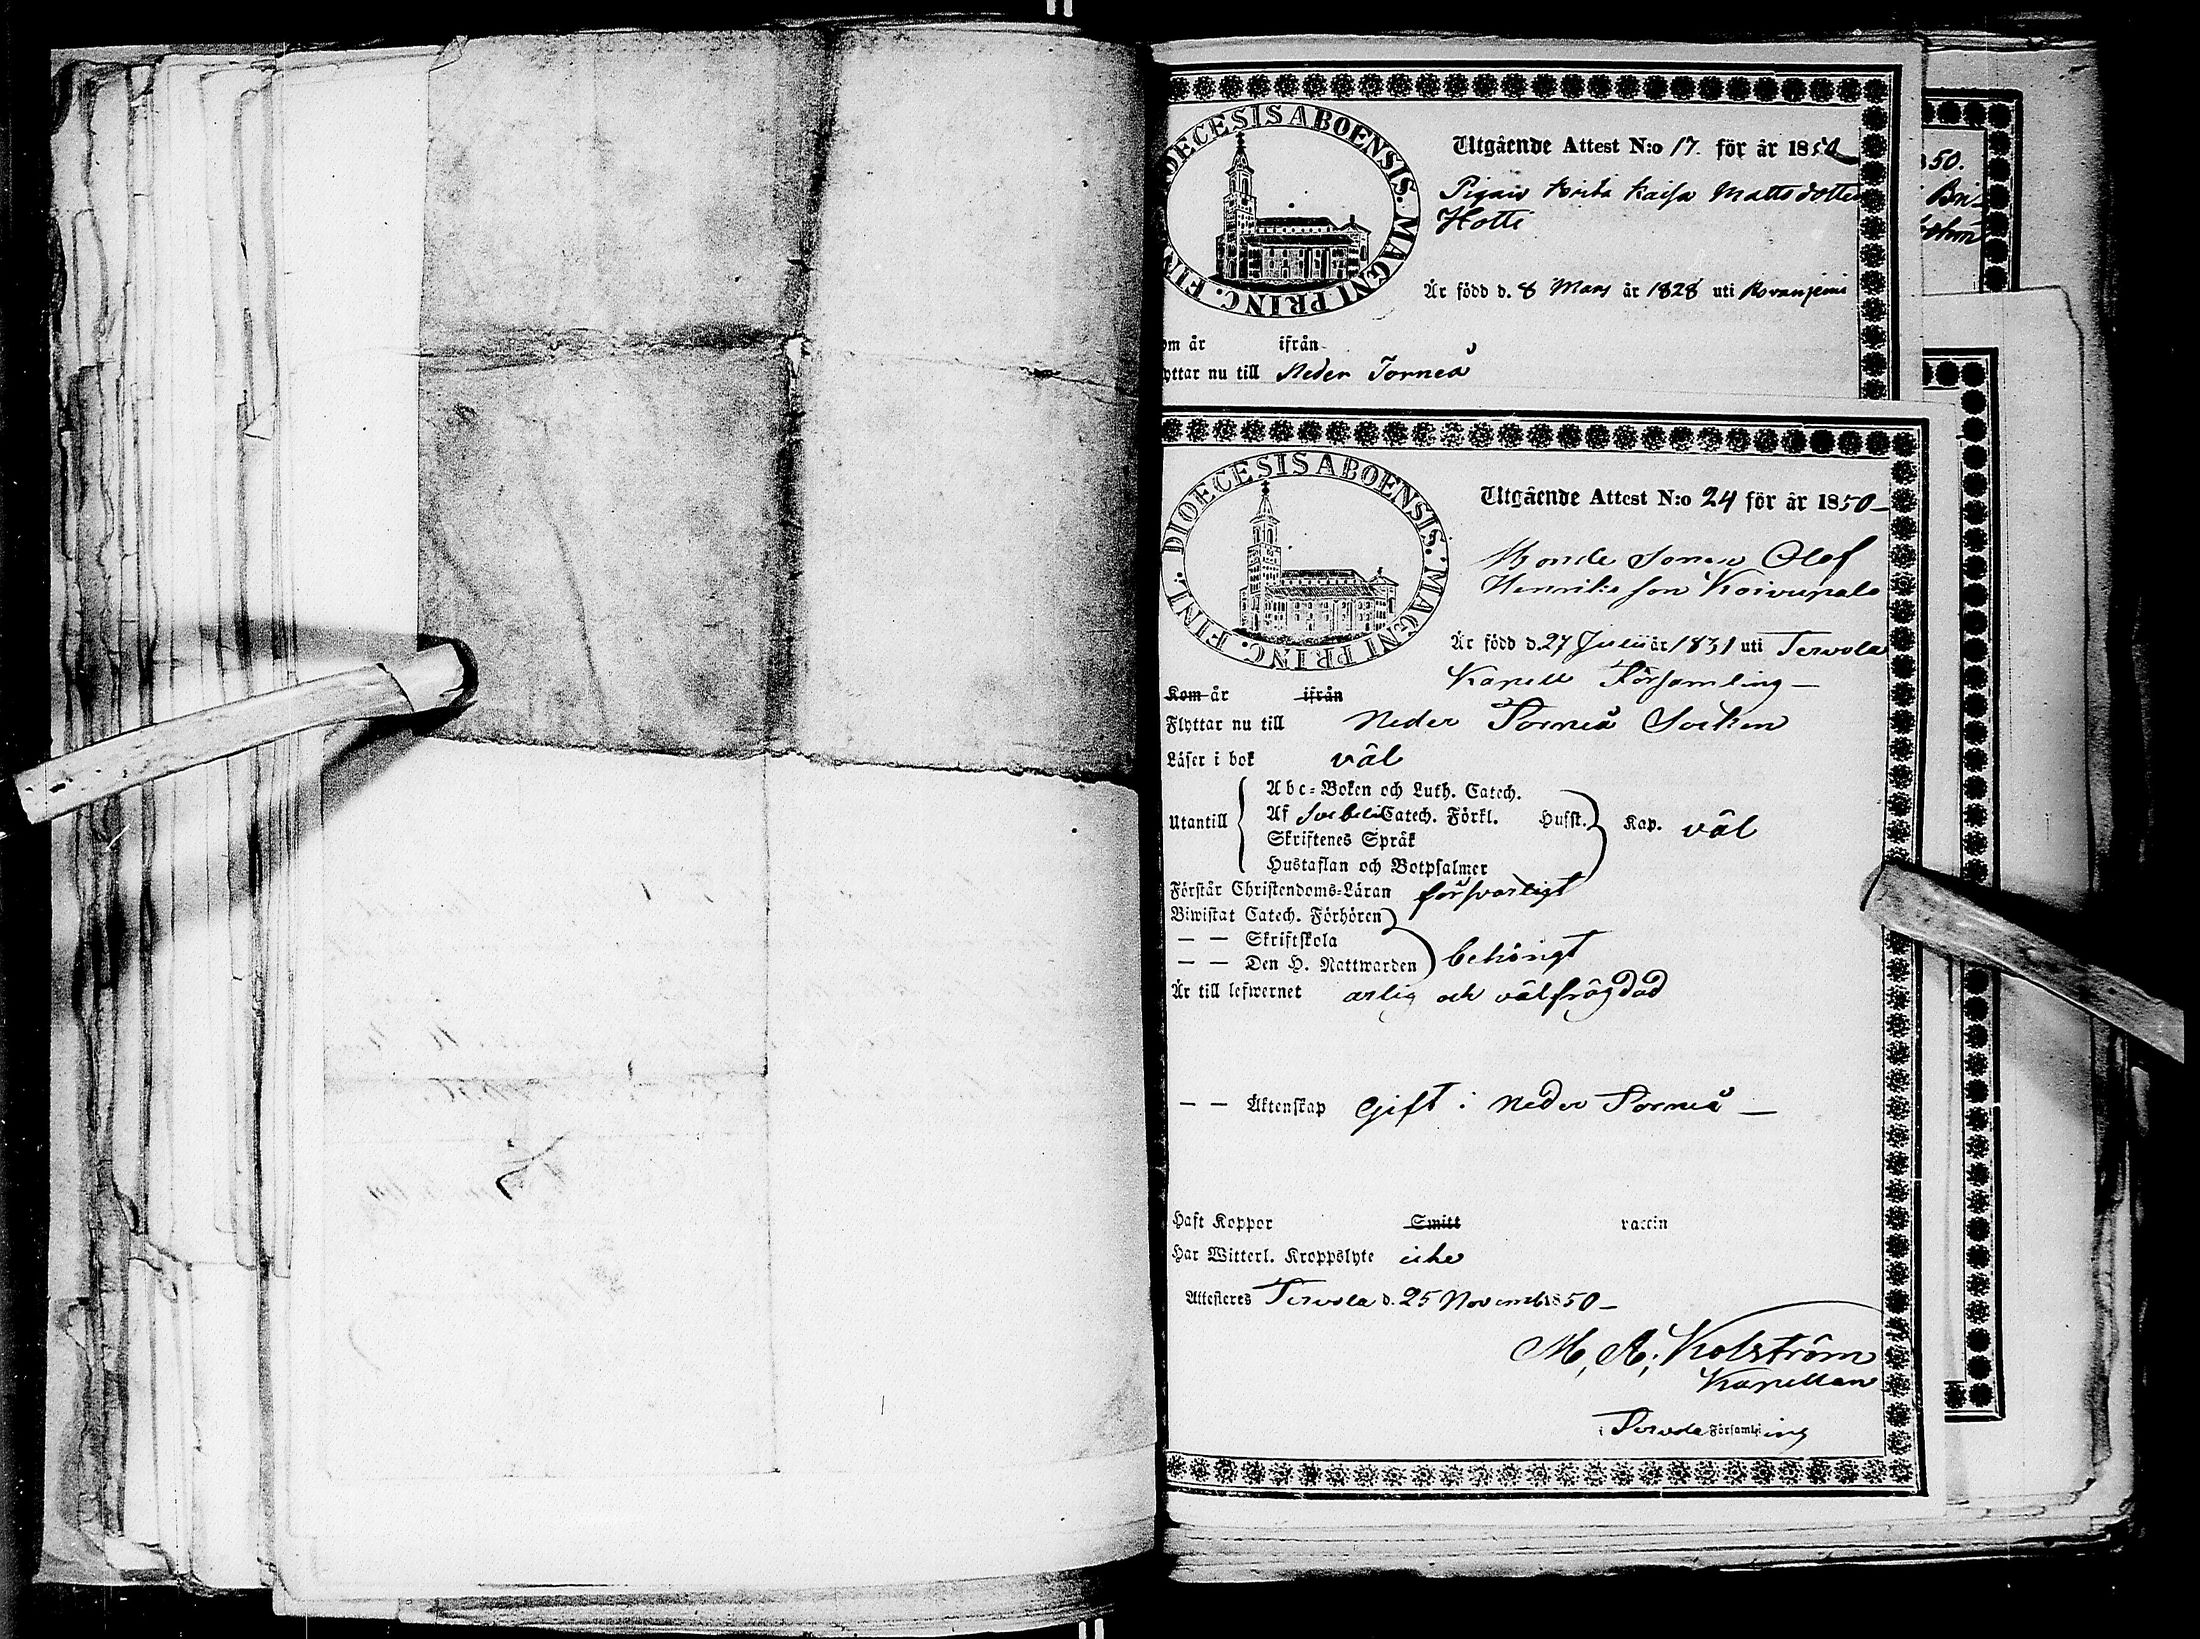 DIOECESIS ABOENSIS. MAGNI PRINC. FIN
Utgående Attest N:o 17. för år 1850
Pigan Brita Kaisa Mattsdotter
Hotti
Är född d. 8 Mars år 1828 uti Rovaniemi
om år ifrån
yttar nu till Neder Torneå
50.
Bri-
DIOECESIS ABOENSIS. MAGNI PRINC. FINL.
Utgående Attest N:o 24 för år 1850
Bonde Sonen Olof
Henriksson Koivupalo
Är född d. 27 Julii år 1831 uti Tervola
Kapell Församling
Kom år ifrån
Flyttar nu till Neder Torneå Socken
Läser i bok väl
Abc-Boken och Luth. Catech.
Utantill Af Svebelii Catech. Förkl. Hufst. Kap. väl
Skriftenes Språk
Hustaflan och Botpsalmer
Förstår Christendoms-Läran försvarligt
Biwistat Catech. Förhören
— — Skriftskola
— — Den H. Nattwarden behörigt
Är till lefwernet ärlig och välfrägdad
— — Äktenskap Gift i Neder Torneå —
Haft Koppor Smitt vaccin
Har Witterl. Kroppslyte icke
Attesteres Tervola d. 25 Novemb 1850 —
M. A. Kolström
Kapellan
i Tervola Församling